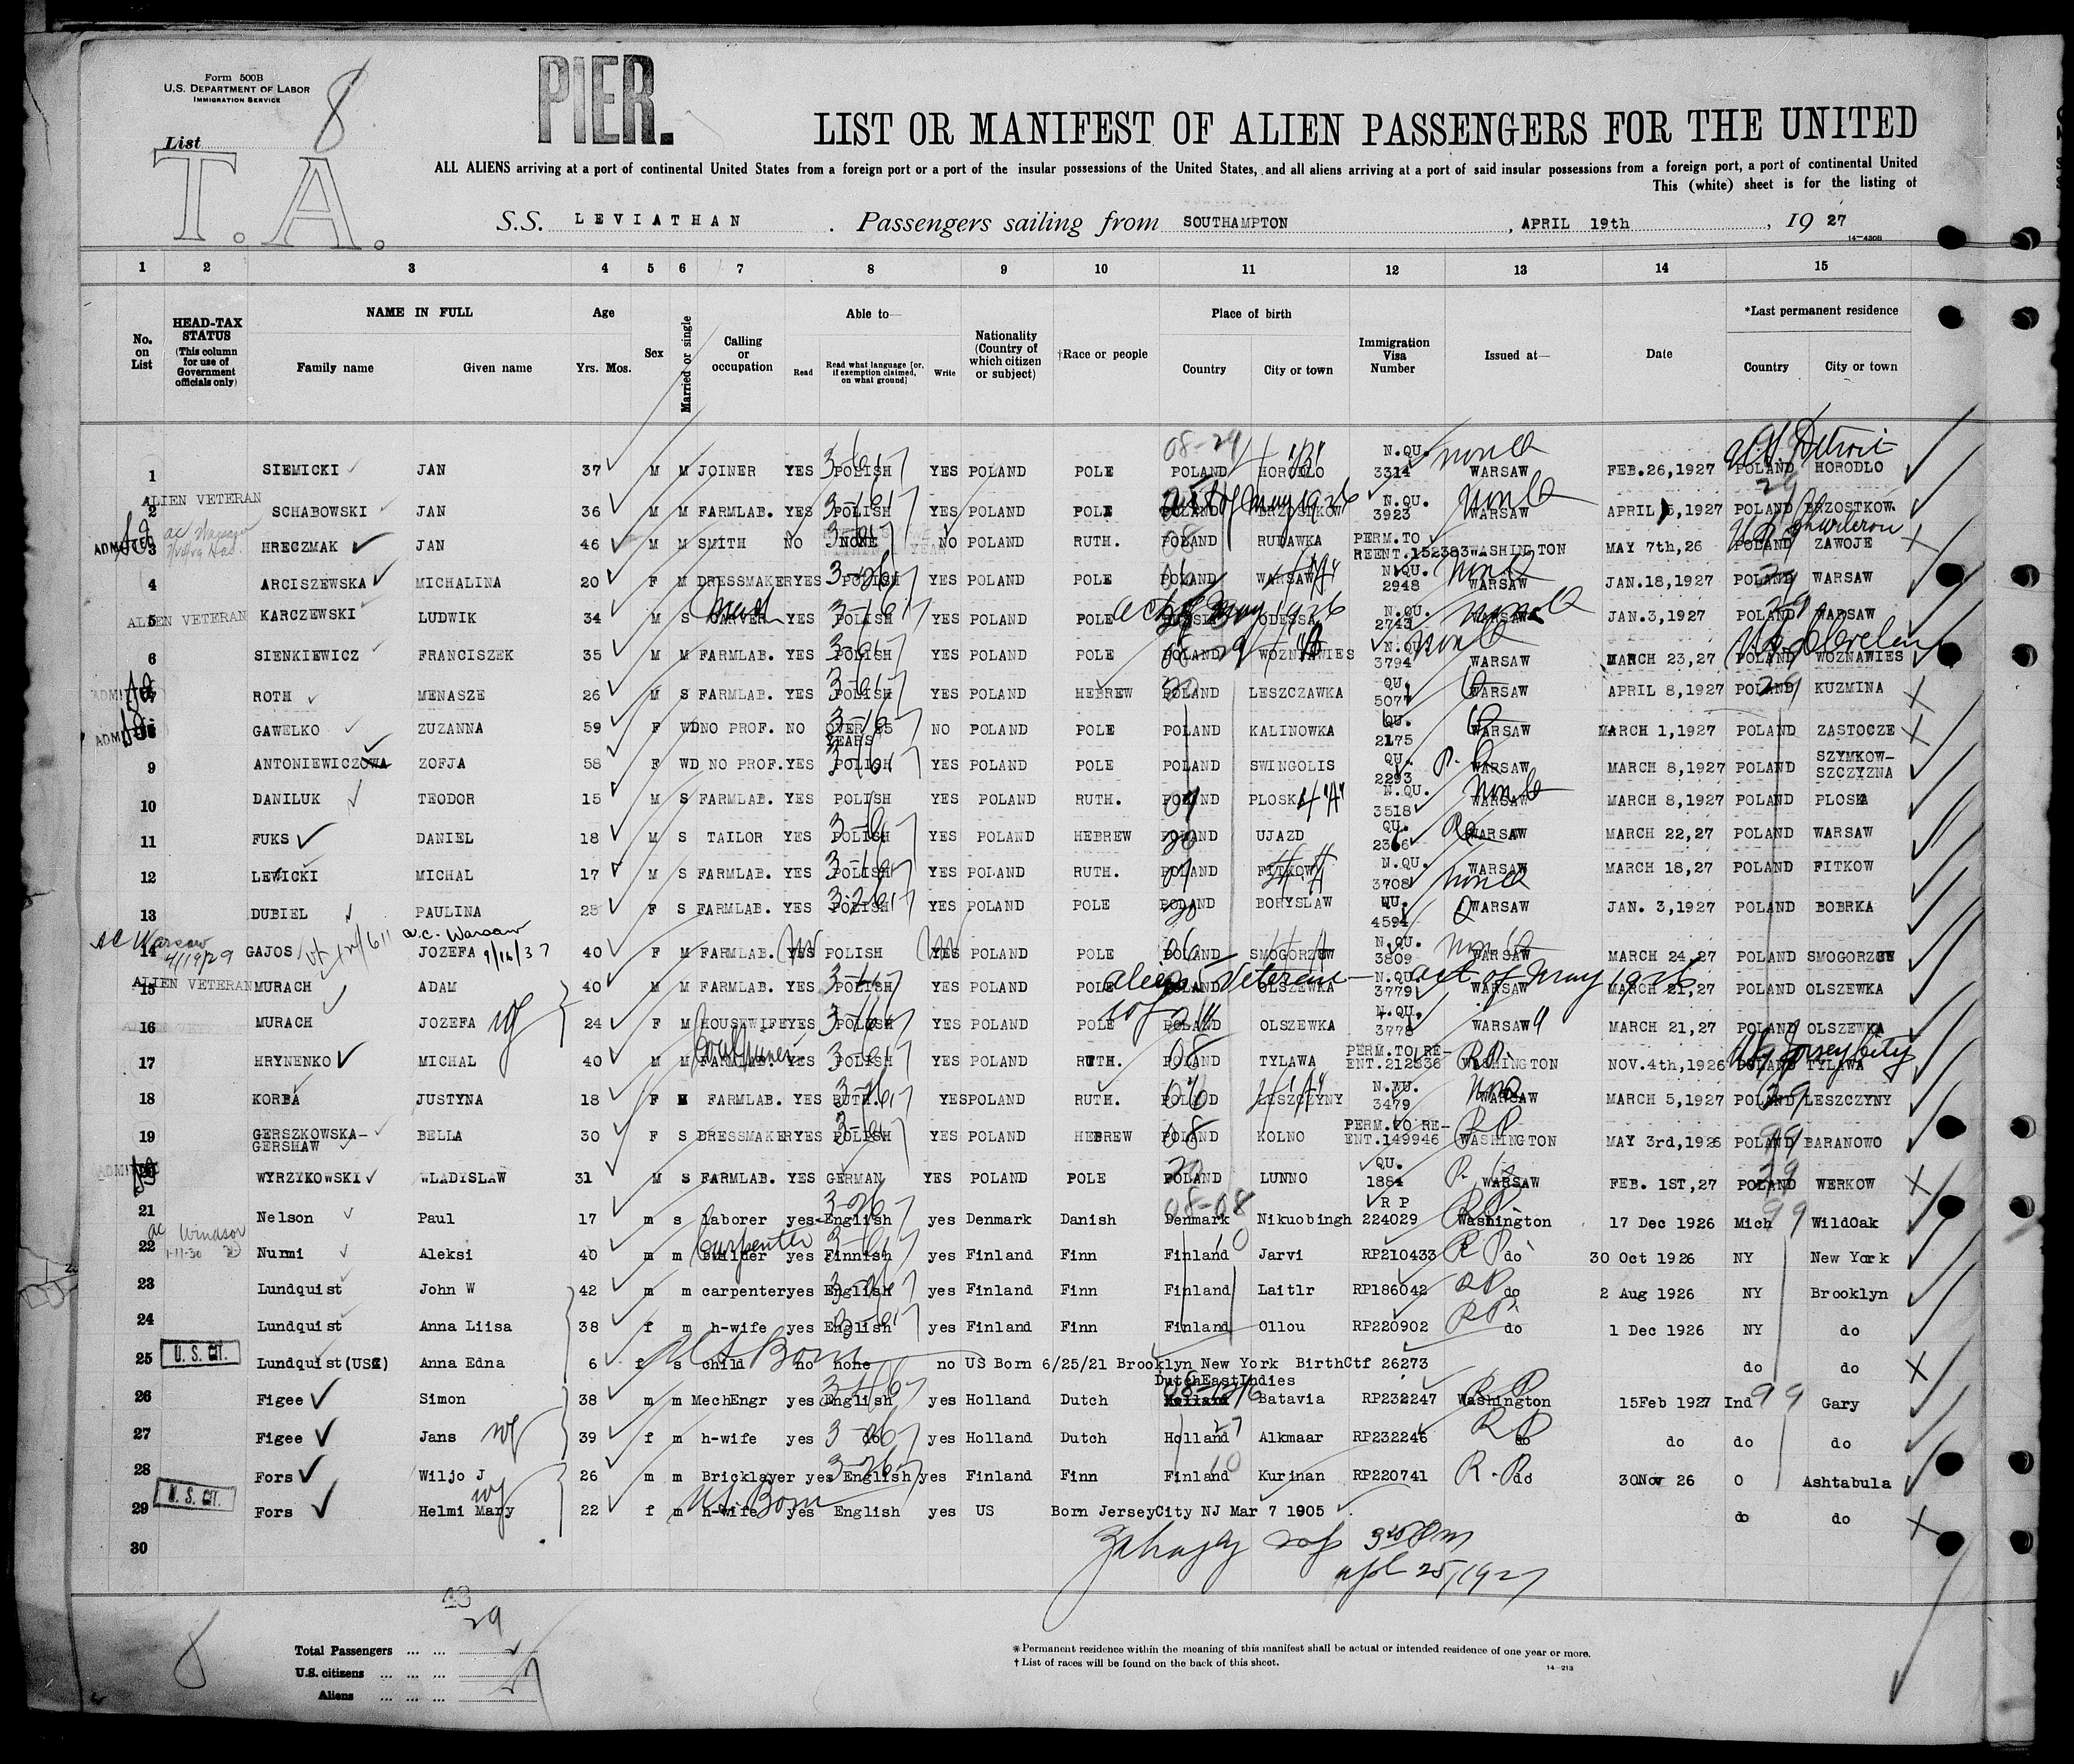 Form 500B
U.S. DEPARTMENT OF LABOR
IMMIGRATION SERVICE
8
PIER.
List
T. A.
LIST OR MANIFEST OF ALIEN PASSENGERS FOR THE UNITED
ALL ALIENS arriving at a port of continental United States from a foreign port or a port of the insular possessions of the United States, and all aliens arriving at a port of said insular possessions from a foreign port, a port of continental United
This (white) sheet is for the listing of
S.S. LEVIATHAN . Passengers sailing from SOUTHAMPTON , APRIL 19th , 19 27
14-430B
1 2 3 4 5 6 7 8 9 10 11 12 13 14 15
No. on List HEAD-TAX STATUS (This column for use of Government officials only) NAME IN FULL Family name Given name Age Yrs. Mos. Sex Married or single Calling or occupation Able to— Read Read what language [or, if exemption claimed, on what ground] Write Nationality (Country of which citizen or subject) †Race or people Place of birth Country City or town Immigration Visa Number Issued at— Date *Last permanent residence Country City or town
08-29 N.QU. Detroit
1 SIEMICKI JAN 37 M M JOINER YES POLISH YES POLAND POLE POLAND HORODLO 3314 WARSAW FEB.26,1927 POLAND HORODLO
ALIEN VETERAN act of May 1926 N.QU.
2 SCHABOWSKI JAN 36 M M FARMLAB. YES POLISH YES POLAND POLE POLAND BRZOSTKOW 3923 WARSAW APRIL 5,1927 POLAND BRZOSTKOW
ADMITTED PERM.TO
3 HRECZMAK JAN 46 M M SMITH NO NONE NO POLAND RUTH. POLAND RUDAWKA REENT.152383 WASHINGTON MAY 7th,26 POLAND ZAWOJE
N.QU.
4 ARCISZEWSKA MICHALINA 20 F M DRESSMAKER YES POLISH YES POLAND POLE POLAND WARSAW 2948 WARSAW JAN.18,1927 POLAND WARSAW
ALIEN VETERAN act of May 1926 N.QU.
5 KARCZEWSKI LUDWIK 34 M S CARVER YES POLISH YES POLAND POLE RUSSIA ODESSA 2743 WARSAW JAN.3,1927 POLAND WARSAW
N.QU.
6 SIENKIEWICZ FRANCISZEK 35 M M FARMLAB. YES POLISH YES POLAND POLE POLAND WOZNAWIES 3794 WARSAW MARCH 23,27 POLAND WOZNAWIES
ADMITTED QU.
7 ROTH MENASZE 26 M S FARMLAB. YES POLISH YES POLAND HEBREW POLAND LESZCZAWKA 5077 WARSAW APRIL 8,1927 POLAND KUZMINA
ADMITTED QU.
8 GAWELKO ZUZANNA 59 F WD NO PROF. NO OVER 55 YEARS NO POLAND POLE POLAND KALINOWKA 2175 WARSAW MARCH 1,1927 POLAND ZASTOCZE
QU.
9 ANTONIEWICZOWA ZOFJA 58 F WD NO PROF. YES POLISH YES POLAND POLE POLAND SWINGOLIS 2293 WARSAW MARCH 8,1927 POLAND SZYMKOW-SZCZYZNA
N.QU.
10 DANILUK TEODOR 15 M S FARMLAB. YES POLISH YES POLAND RUTH. POLAND PLOSK 3518 WARSAW MARCH 8,1927 POLAND PLOSKA
QU.
11 FUKS DANIEL 18 M S TAILOR YES POLISH YES POLAND HEBREW POLAND UJAZD 2366 WARSAW MARCH 22,27 POLAND WARSAW
N.QU.
12 LEWICKI MICHAL 17 M S FARMLAB. YES POLISH YES POLAND RUTH. POLAND FITKOW 3708 WARSAW MARCH 18,27 POLAND FITKOW
QU.
13 DUBIEL PAULINA 25 F S FARMLAB. YES POLISH YES POLAND POLE POLAND BORYSLAW 4594 WARSAW JAN. 3,1927 POLAND BOBRKA
AC Warsaw 4/19/29 a.c. Warsaw 9/16/37 N.QU.
14 GAJOS JOZEFA 40 F M FARMLAB. YES POLISH YES POLAND POLE POLAND SMOGORZOW 3809 WARSAW MARCH 24,27 POLAND SMOGORZOW
ALIEN VETERAN alien Veteran — act of May 1926 N.QU.
15 MURACH ADAM 40 M M FARMLAB. YES POLISH YES POLAND POLE POLAND OLSZEWKA 3779 WARSAW MARCH 21,27 POLAND OLSZEWKA
N.QU.
16 MURACH JOZEFA wf 24 F M HOUSEWIFE YES POLISH YES POLAND POLE POLAND OLSZEWKA 3778 WARSAW MARCH 21,27 POLAND OLSZEWKA
Coal miner PERM.TO RE- Jersey City
17 HRYNENKO MICHAL 40 M M FARMLAB. YES POLISH YES POLAND RUTH. POLAND TYLAWA ENT.212336 WASHINGTON NOV.4th,1926 POLAND TYLAWA
18 KORBA JUSTYNA 18 F M FARMLAB. YES RUTH. YES POLAND RUTH. POLAND LESZCZYNY 3479 WARSAW MARCH 5,1927 POLAND LESZCZYNY
PERM.TO RE-
19 GERSZKOWSKA-GERSHAW BELLA 30 F S DRESSMAKER YES POLISH YES POLAND HEBREW POLAND KOLNO ENT.149946 WASHINGTON MAY 3rd,1926 POLAND BARANOWO
ADMITTED QU.
20 WYRZYKOWSKI WLADYSLAW 31 M S FARMLAB. YES GERMAN YES POLAND POLE POLAND LUNNO 1884 WARSAW FEB. 1ST,27 POLAND WERKOW
08-08 R P
21 Nelson Paul 17 m s laborer yes English yes Denmark Danish Denmark Nikuobingh 224029 Washington 17 Dec 1926 Mich WildOak
ac Windsor 1-11-30 Carpenter
22 Nurmi Aleksi 40 m m builder yes Finnish yes Finland Finn Finland Jarvi RP210433 do 30 Oct 1926 NY New York
23 Lundquist John W 42 m m carpenter yes English yes Finland Finn Finland Laitlr RP186042 do 2 Aug 1926 NY Brooklyn
24 Lundquist Anna Liisa 38 f m h-wife yes English yes Finland Finn Finland Ollou RP220902 do 1 Dec 1926 NY do
U.S. CIT. US Born
25 Lundquist(USC) Anna Edna 6 f s child no none no US Born 6/25/21 Brooklyn New York BirthCtf 26273 do do
DutchEastIndies
26 Figee Simon 38 m m MechEngr yes English yes Holland Dutch Holland Batavia RP232247 Washington 15Feb 1927 Ind Gary
27 Figee Jans wf 39 f m h-wife yes do yes Holland Dutch Holland Alkmaar RP232246 do do do do
28 Fors Wiljo J 26 m m Bricklayer yes English yes Finland Finn Finland Kurinan RP220741 do 30Nov 26 O Ashtabula
U.S. CIT. wf US Born
29 Fors Helmi Mary 22 f m h-wife yes English yes US Born JerseyCity NJ Mar 7 1905 do do
30
apl 25/1927
43
29
8
Total Passengers ... ...
U.S. citizens ... ... ...
Aliens ... ... ...
* Permanent residence within the meaning of this manifest shall be actual or intended residence of one year or more.
† List of races will be found on the back of this sheet.
14-213